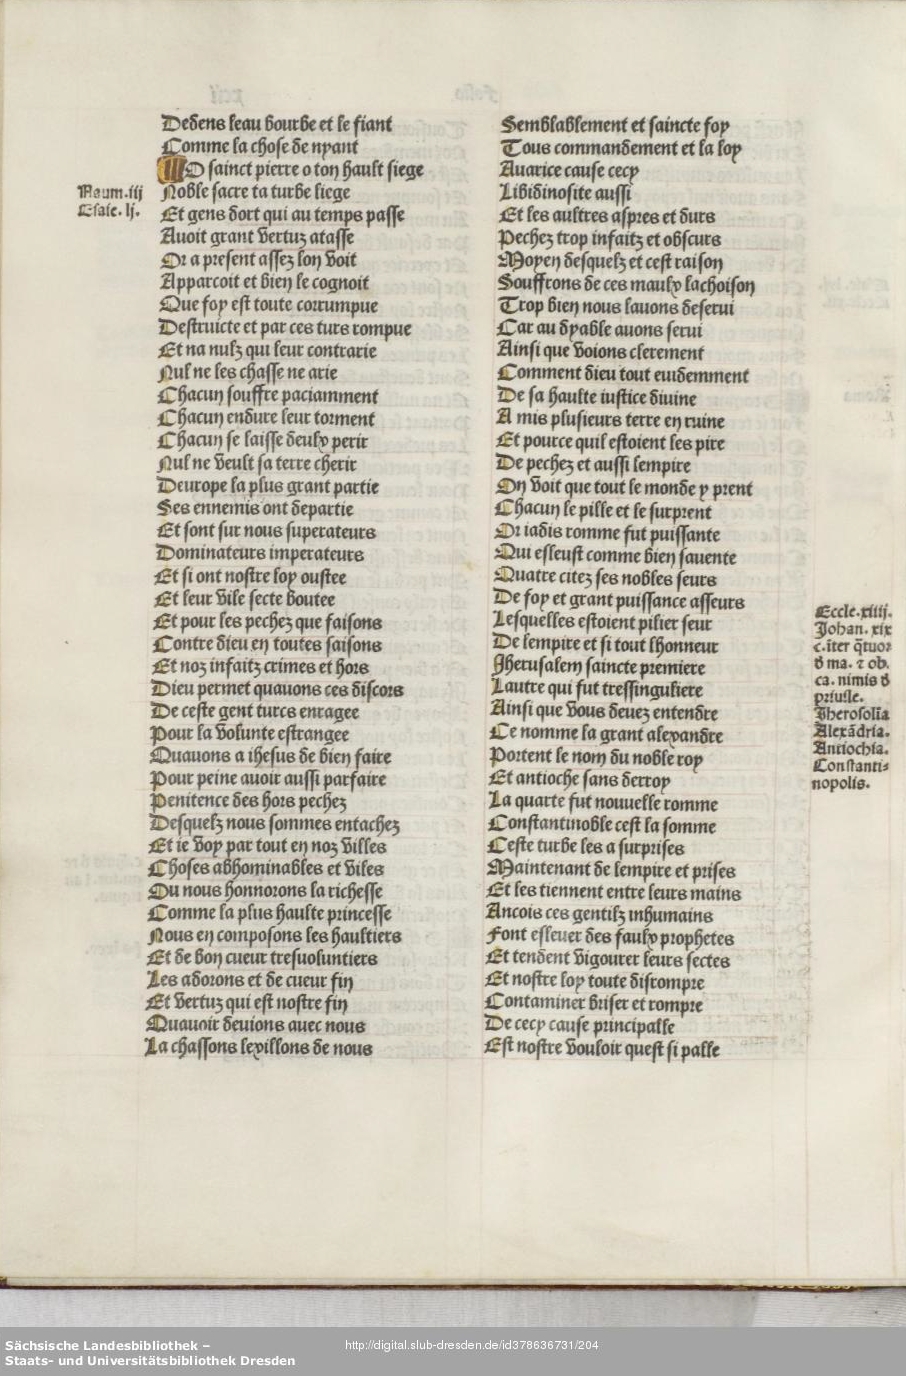 Dedens leau bourbe et le fiant
Comme la chose de nyant
O sainct pierre o ton hault siege
Noble sacre ta turbe liege
Et gens dort qui au temps passe
Avoit grant vertuz atasse
Or a present assez lon voit
Apparcoit et bien le cognoit
Que foy est toute corrumpue
Destruicte et par ces turs rompue
Et na nulz qui leur contrarie
Nul ne les chasse ne arie
Chacun souffre paciamment
Chacun endure leur torment
Chacun se laisse deulx perir
Nul ne veult sa terre cherir
Deurope la plus grant partie
Ses ennemis ont departie
Et sont sur nous superateurs
Dominateurs imperateurs
Et si ont nostre loy oustee
Et leur vile secte boutee
Et pour les pechez que faisons
Contre dieu en toutes saisons
Et noz infaitz crimes et hors
Dieu permet quauons ces discors
De ceste gent turcs enragee
Pour la volunte estrangee
Quauons a ihesus de bien faire
Pour peine avoir aussi parfaire
Penitence des hors pechez
Desquelz nous sommes entachez
Et ie voy par tout en noz villes
Choses abhominables et viles
Ou nous honnorons la richesse
Comme la plus haulte princesse
Nous en composons les haultiers
Et de bon cueur tresuoluntiers
Les adorons et de cueur fin
Et vertuz qui est nostre fin
Quauoir deuions auec nous
La chassons lexillons de nous
Naum.iij
Esaie.lj.
Semblablement et saincte foy
Tous commandement et la loy
Auarice cause cecy
Libidinosite aussi
Et les aultres aspres et durs
Pechez trop infaitz et obscurs
Moyen desquelz et cest raison
Souffrons de ces maulx lachoison
Trop bien nous lauons deserui
Car au dyable auons serui
Ainsi que voions clerement
Comment dieu tout euidemment
De sa haulte iustice diuine
A mis plusieurs terre en ruine
Et pource quil estoient les pire
De pechez et aussi lempire
On voit que tout le monde y prent
Chacun le pille et le surprent
Or iadis romme fut puissante
Qui esleust comme bien sauente
Quatre citez ses nobles seurs
De foy et grant puissance asseurs
Lesquelles estoient pilier seur
De lempire et si tout lhonneur
Jherusalem saincte premiere
Lautre qui fut tressinguliere
Ainsi que vous deuez entendre
Ce nomme la grant alexandre
Portent le nom du noble roy
Et antioche sans derroy
La quarte fut nouuelle romme
Constantinoble cest la somme
Ceste turbe les a surprises
Maintenant de lempire et prises
Et les tiennent entre leurs mains
Ancois ces gentilz inhumains
Font esleuer des faulx prophetes
Et tendent vigourer leurs sectes
Et nostre loy toute disrompre
Contaminer briser et rompre
De cecy cause principalle
Est nostre vouloir quest si palle
Eccle.xiiij.
Johan. xix
c. iter q̄tuor
d ma. ⁊ ob.
ca. nimis d
priuile.
Jherosolīa
Alexādria.
Antiochia.
Constanti=
nopolis.
Sächsische Landesbibliothek –
Staats- und Universitätsbibliothek Dresden
http://digital.slub-dresden.de/id378636731/204